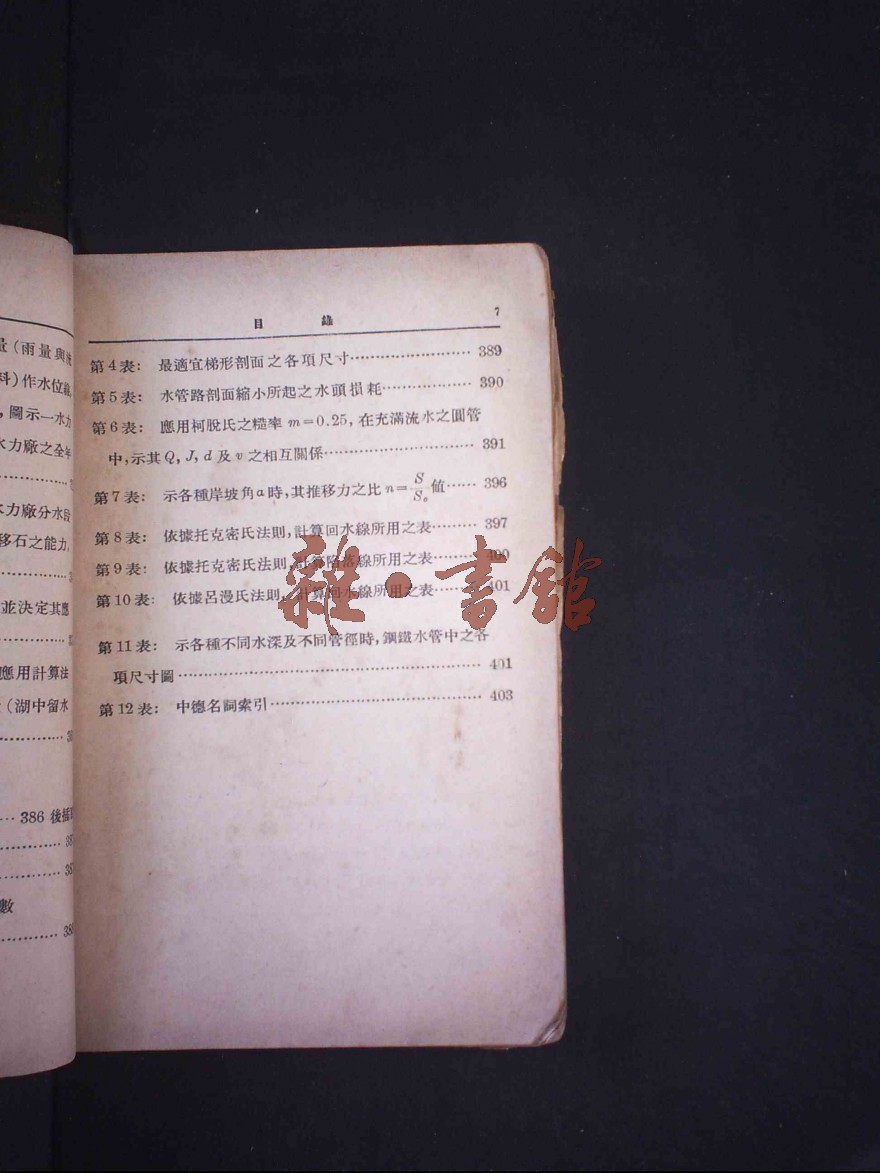 量(雨量與
料)作水位
，圖示一水力
水力廠之全年
水力廠分水段
移石之能力，
並決定其應
應用計算法
(湖中留水
386 後插
數
目錄 7
第4表： 最適宜梯形剖面之各項尺寸…………………… 389
第5表： 水管路剖面縮小所起之水頭損耗……………… 390
第6表： 應用柯脫氏之糙率 m=0.25，在充滿流水之圓管
中，示其 Q, J, d 及 v 之相互關係…………………………… 391
第7表： 示各種岸坡角α時，其推移力之比 n=S/Sₒ值…… 396
第8表： 依據托克密氏法則，計算回水線所用之表……… 397
第9表： 依據托克密氏法則，計算陷落線所用之表……… 400
第10表： 依據呂漫氏法則，計算回水線所用之表……… 401
第11表： 示各種不同水深及不同管徑時，鋼鐵水管中之各
項尺寸圖…………………………………………………… 401
第12表： 中德名詞索引…………………………………… 403
雜·書館